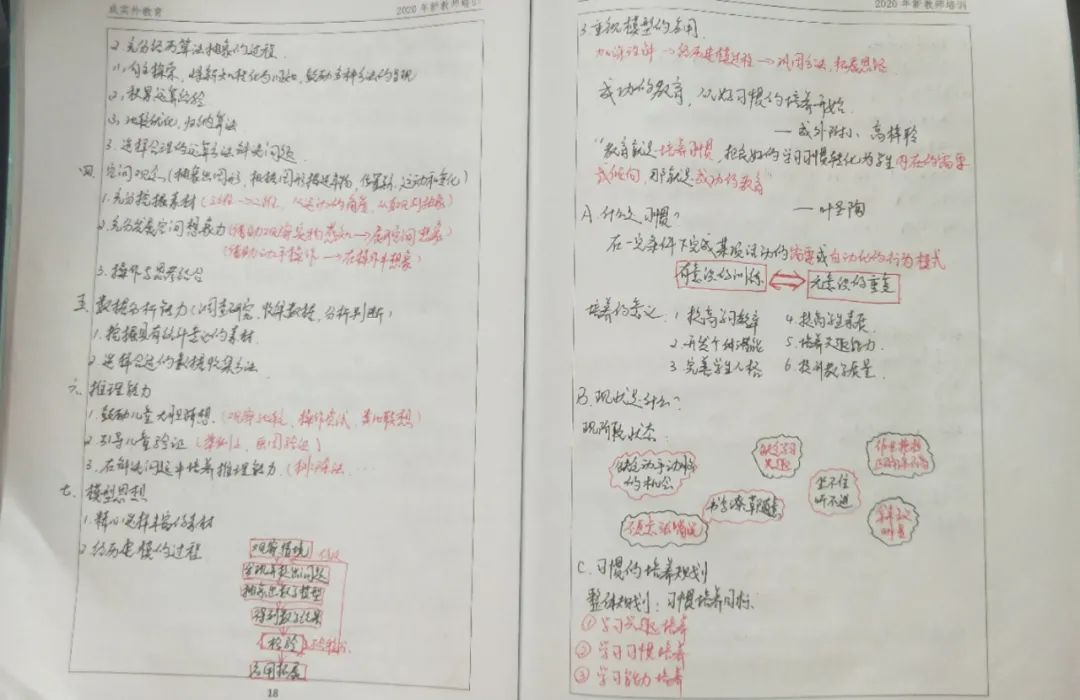 成实外教育
2020年新教师培训
2. 充分经历算法抽象的过程
(1) 自主探索，将新知转化为旧知，鼓励多种方法的呈现
(2) 积累运算经验
(3) 比较优化，归纳算法
3. 选择合理的运算方法解决问题
四、空间观念（抽象出图形，根据图形描述事物，位置关系，运动和变化）
1. 充分挖掘素材（三维→二维，从运动的角度，从
2. 充分发展空间想象力（借助观察实物感知→展开空间想象）
（借助动手操作→在操作中想象）
3. 操作与思考结合
五、数据分析能力（调查研究，收集数据，分析判断）
1. 挖掘具有统计意义的素材
2. 选择合适的数据收集方法
六、推理能力
1. 鼓励儿童大胆猜想（观察比较，操作尝试，类比联想）
2. 引导儿童验证（举例，画图验证）
3. 在解决问题中培养推理能力（
七、模型思想
1. 精心选择丰富的素材
2. 经历建模的过程
观察情境
发现并提出问题
抽象出数学模型
得到数学结果
检验
应用拓展
18
2020年新教师培训
3. 重视模型的应用
加深理解→经历建模过程→巩固方法，拓展思路
成功的教育，从好习惯的培养开始
—成外附小 高梓聆
“教育就是培养习惯，把良好的学习习惯转化为学生内在的需要
或倾向，那就是成功的教育”
—叶圣陶
A. 什么是习惯？
在一定条件下完成某项活动的需要或自动化的行为模式
有意识的训练 ⟺ 无意识的重复
培养的意义：1. 提高学习效率 4. 提高学生素质
2. 开发个体潜能 5. 培养思维能力
3. 完善学生人格 6. 提升教学质量
B. 现状是什么？
现阶段状态：
缺乏动手动脑的机会
缺乏学习兴趣
坐不住 听不进
书写潦草随意
C. 习惯的培养规划
整体规划：习惯培养目标
① 学习兴趣培养
② 学习习惯培养
③ 学习能力培养